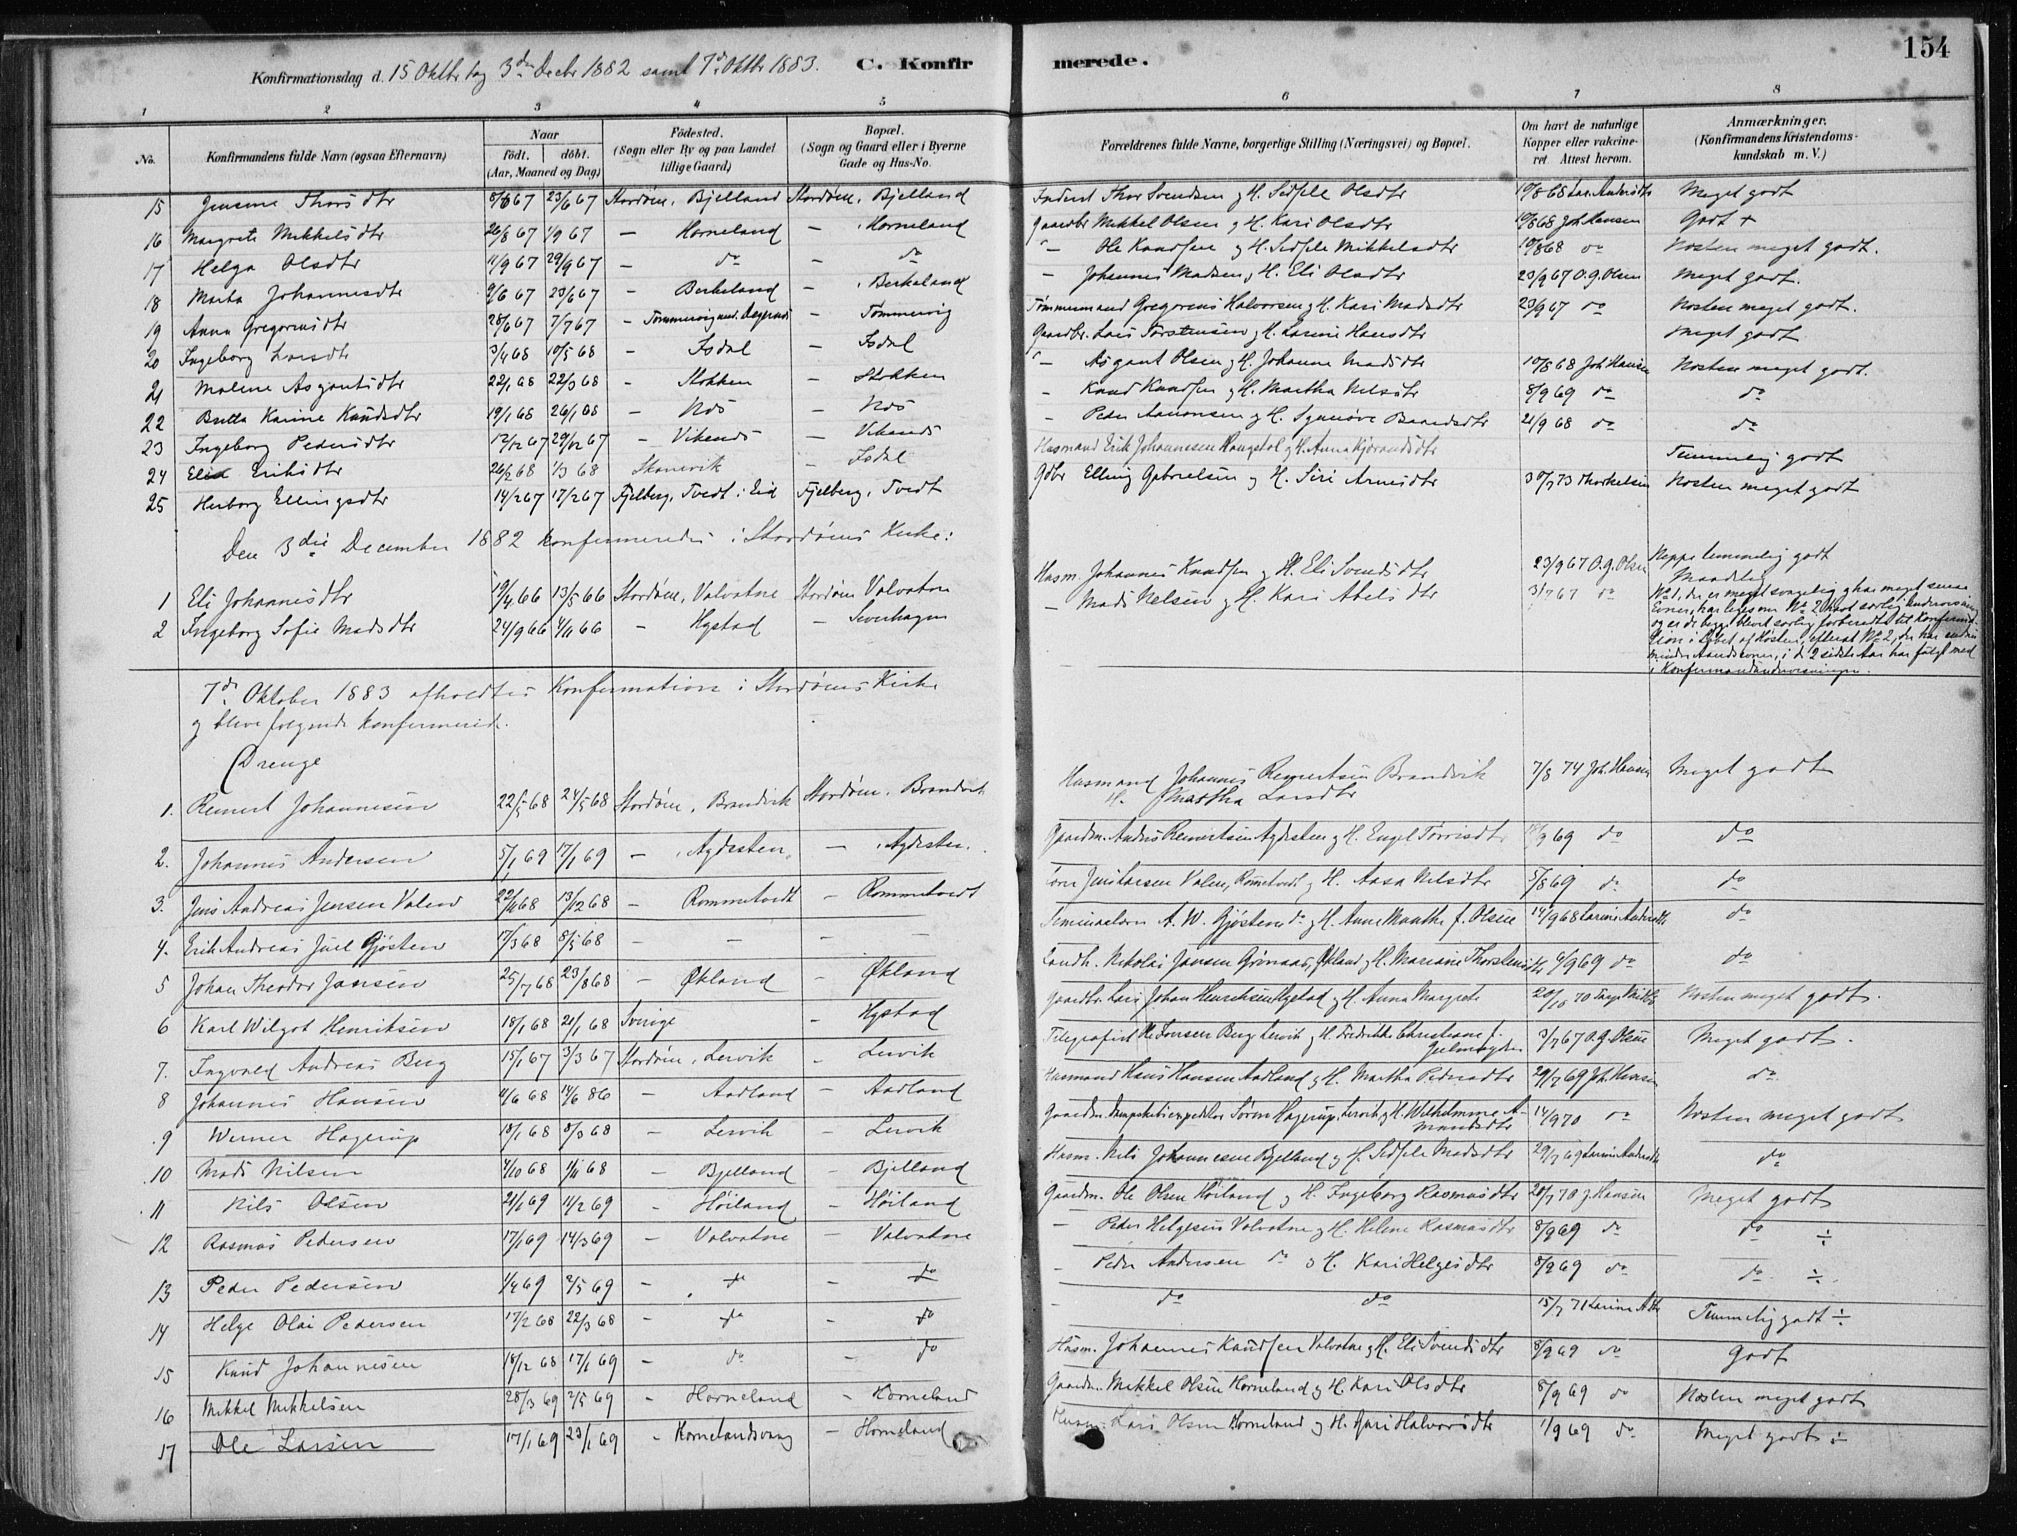 154
Konfirmationsdag d. 15 Oktbr og 3die Decbr 1882 samt 7de Oktbr 1883. C. Konfir merede.
1 2 3 4 5 6 7 8
No. Konfirmandens fulde Navn (ogsaa Efternavn) Naar født. døbt. (Aar, Maaned og Dag) Fødested. (Sogn eller By og paa Landet tillige Gaard) Bopæl. (Sogn og Gaard eller i Byerne Gade og Hus-No. Forældrenes fulde Navne, borgerlige Stilling (Næringsvei) og Bopæl. Om havt de naturlige Kopper eller vakcineret. Attest herom. Anmærkninger. (Konfirmandens Kristendomskundskab m. V.)
15 Jensine Thorsdtr 8/6 67 23/6 67 Stordøen, Bjelland Stordøen, Bjelland Inderst Thor Svendsen og H. Sidsele Olsdtr 19/8 68 Lar. Andersdtr Meget godt
16 Margrete Mikkelsdtr 26/8 67 1/9 67 — Horneland — Horneland Gaardbr Mikkel Olsen og H. Kari Olsdtr 19/8 68 Joh. Hansen Godt +
17 Helga Olsdtr 11/9 67 29/9 67 — do — do — Ole Knudsen og H. Sidsele Mikkelsdtr 19/8 68 do Næsten meget godt.
18 Marta Johannesdtr 9/6 67 23/6 67 — Berkeland — Berkeland — Johannes Madsen og H. Eli Olsdtr 23/9 67 O. G. Olsen Meget godt.
19 Anna Gregoriusdtr 28/6 67 7/7 67 — Tømmervig — Tømmervig Tømmermand Gregorius Halvorsen og H. Kari Madsdtr 23/9 67 do Næsten meget godt.
20 Ingeborg Larsdtr 3/4 68 10/5 68 — Isdal — Isdal Gaardbr. Lars Torstensen og H. Larine Hansdtr Meget godt
21 Malene Asgautsdtr 22/1 68 22/3 68 — Stokken — Stokken — Asgaut Olsen og H. Johanna Madsdtr 19/8 68 Joh. Hansen Næsten meget godt.
22 Britta Karine Knudsdtr 19/1 68 26/1 68 — Næs — Næs — Knud Knudsen og H. Martha Nelsdtr 8/9 69 do do
23 Ingeborg Pedersdtr 12/12 67 29/12 67 — Vikanes — Vikanes — Peder Aanonsen og H. Synnøve Baardsdtr 21/9 68 do do
24 Eli Eriksdtr 26/2 68 1/3 68 Skonevik — Isdal Husmand Erik Johannesen Haugstøl og H. Anna Kjørandsdtr Temmelig godt
25 Herborg Ellingsdtr 14/2 67 17/2 67 Fjelberg, Tvedt i Eid Fjelberg, Tvedt Gdbr Elling Gabrielsen og H. Siri Arnesdtr 30/7 73 Thorkelsen Næsten meget godt
Den 3die December 1882 konfirmeredes i Stordøens Kirke:
1 Eli Johannesdtr 19/4 66 13/5 66 Stordøen, Valvatne Stordøen Valvatne Husm. Johannes Knudsen og H. Eli Svendsdtr 23/9 67 O. G. Olsen Neppe temmelig godt
2 Ingeborg Sofie Madsdtr 24/9 66 4/11 66 — Hystad — Severhagen — Mads Nelsen og H. Kari Abelsdtr 31/7 67 do Maadelig
No 1, der er meget svagelig og har meget smaa
Evner, har ligesom No 2 havt særlig Undervisning
og er de begge blevet særlig forberedte til Konfirma-
tion i Løbet af Høsten, efterat No 2, der har endnu
mindre Aandsevner, i de 2 sidste Aar har fulgt med
i Konfirmandundervisningen.
7de Oktober 1883 afholdtes Konfirmation i Stordøens Kirke
og bleve følgende konfirmerede.
Drenge
1. Reinert Johannesen 22/5 68 24/5 68 Stordøen, Brandvik Stordøen, Brandvik Husmand Johannes Reinertsen Brandvik H. Martha Larsdtr 7/8 74 Joh. Hansen Meget godt
2. Johannes Andersen 5/1 69 17/1 69 — Agdesten — Agdesten Gaardm. Anders Reinertsen Agdesten og H. Engel Tørrisdtr 9 69 do do
3. Jens Andreas Jensen Valen 22/11 68 13/12 68 — Rommetvedt — Rommetvedt Jens Larsen Valen, Rommetvedt og H. Aasa Nelsdtr 5/8 69 do do
4. Erik Andreas Juel Gjøsten 17/3 68 8/5 68 — — — — Seminarelærer A. W. Gjøsten do og H. Anne Marthe f. Olsen 14/9 68 Larine Andersdtr do
5 Johan Theodor Jansen 25/7 68 23/8 68 — Økland — Økland Landh. Nikolai Jansen Grønaas, Økland og H. Mariane Thorstensdtr 4/9 69 do do
6 Karl Wilgot Henriksen 18/1 68 21/1 68 Sverige — Hystad Gaardbr. Lars Johan Henriksen Hystad og H. Anna Margrete 20/10 70 Næsten meget godt.
7. Ingvald Andreas Berg 15/1 67 3/3 67 Stordøen, Lervik — Lervik Telegrafist Iversen Berg Lervik og H. Fredrikke Christiane f. 3/7 67 O. G. Olsen Meget godt.
8 Johannes Hansen 4/6 68 14/6 86 — Aadland — Aadland Husmand Hans Hansen Aadland og H. Martha Pedersdtr 29/7 69 Joh. Hansen do
9 Werner Hagerup 18/1 68 8/3 68 — Lervik — Lervik Gaardm. Dampskibsexpeditør Søren Hagerup, Lervik og H. Wilhelmine A-mundsdtr 14/9 70 do Næsten meget godt
10 Mads Nilsen 4/10 68 1/11 68 — Bjelland — Bjelland Husm. Nils Johannesen Bjelland og H. Sidsele Madsdtr 29/7 69 Larine Andersdtr do
11 Nils Olsen 2/1 69 14/2 69 — Høiland — Høiland Gaardm. Ole Olsen Høiland og H. Ingeborg Rasmusdtr 20/7 70 J. Hansen Meget godt
12 Rasmus Pedersen 17/1 69 14/3 69 — Valvatne — Valvatne — Peder Helgesen Valvatne og H. Helene Rasmusdtr 8/9 69 do do ÷
13 Peder Pedersen 1/4 69 2/5 69 — do — do — Peder Andersen do og H. Kari Helgesdtr 8/9 69 do do ÷
14 Helge Olai Pedersen 17/2 68 22/3 68 — do — do — do do 15/7 71 Larine Adtr Temmelig godt ÷
15 Knud Johannesen 18/12 68 17/1 69 — do — do Husm. Johannes Knudsen Valvatne og H. Eli Svendsdtr 8/9 69 do Godt
16 Mikkel Mikkelsen 28/3 69 2/5 69 — Horneland — Horneland Gaardm. Mikkel Olsen Horneland og H. Kari Olsdtr 8/9 69 do Næsten meget godt
17 Ole Larsen 17/1 69 23/1 69 — Hornelandsvaag — Horneland Husm. Lars Olsen Horneland og H. Guri Halvorsdtr 1/9 69 do Meget godt ÷